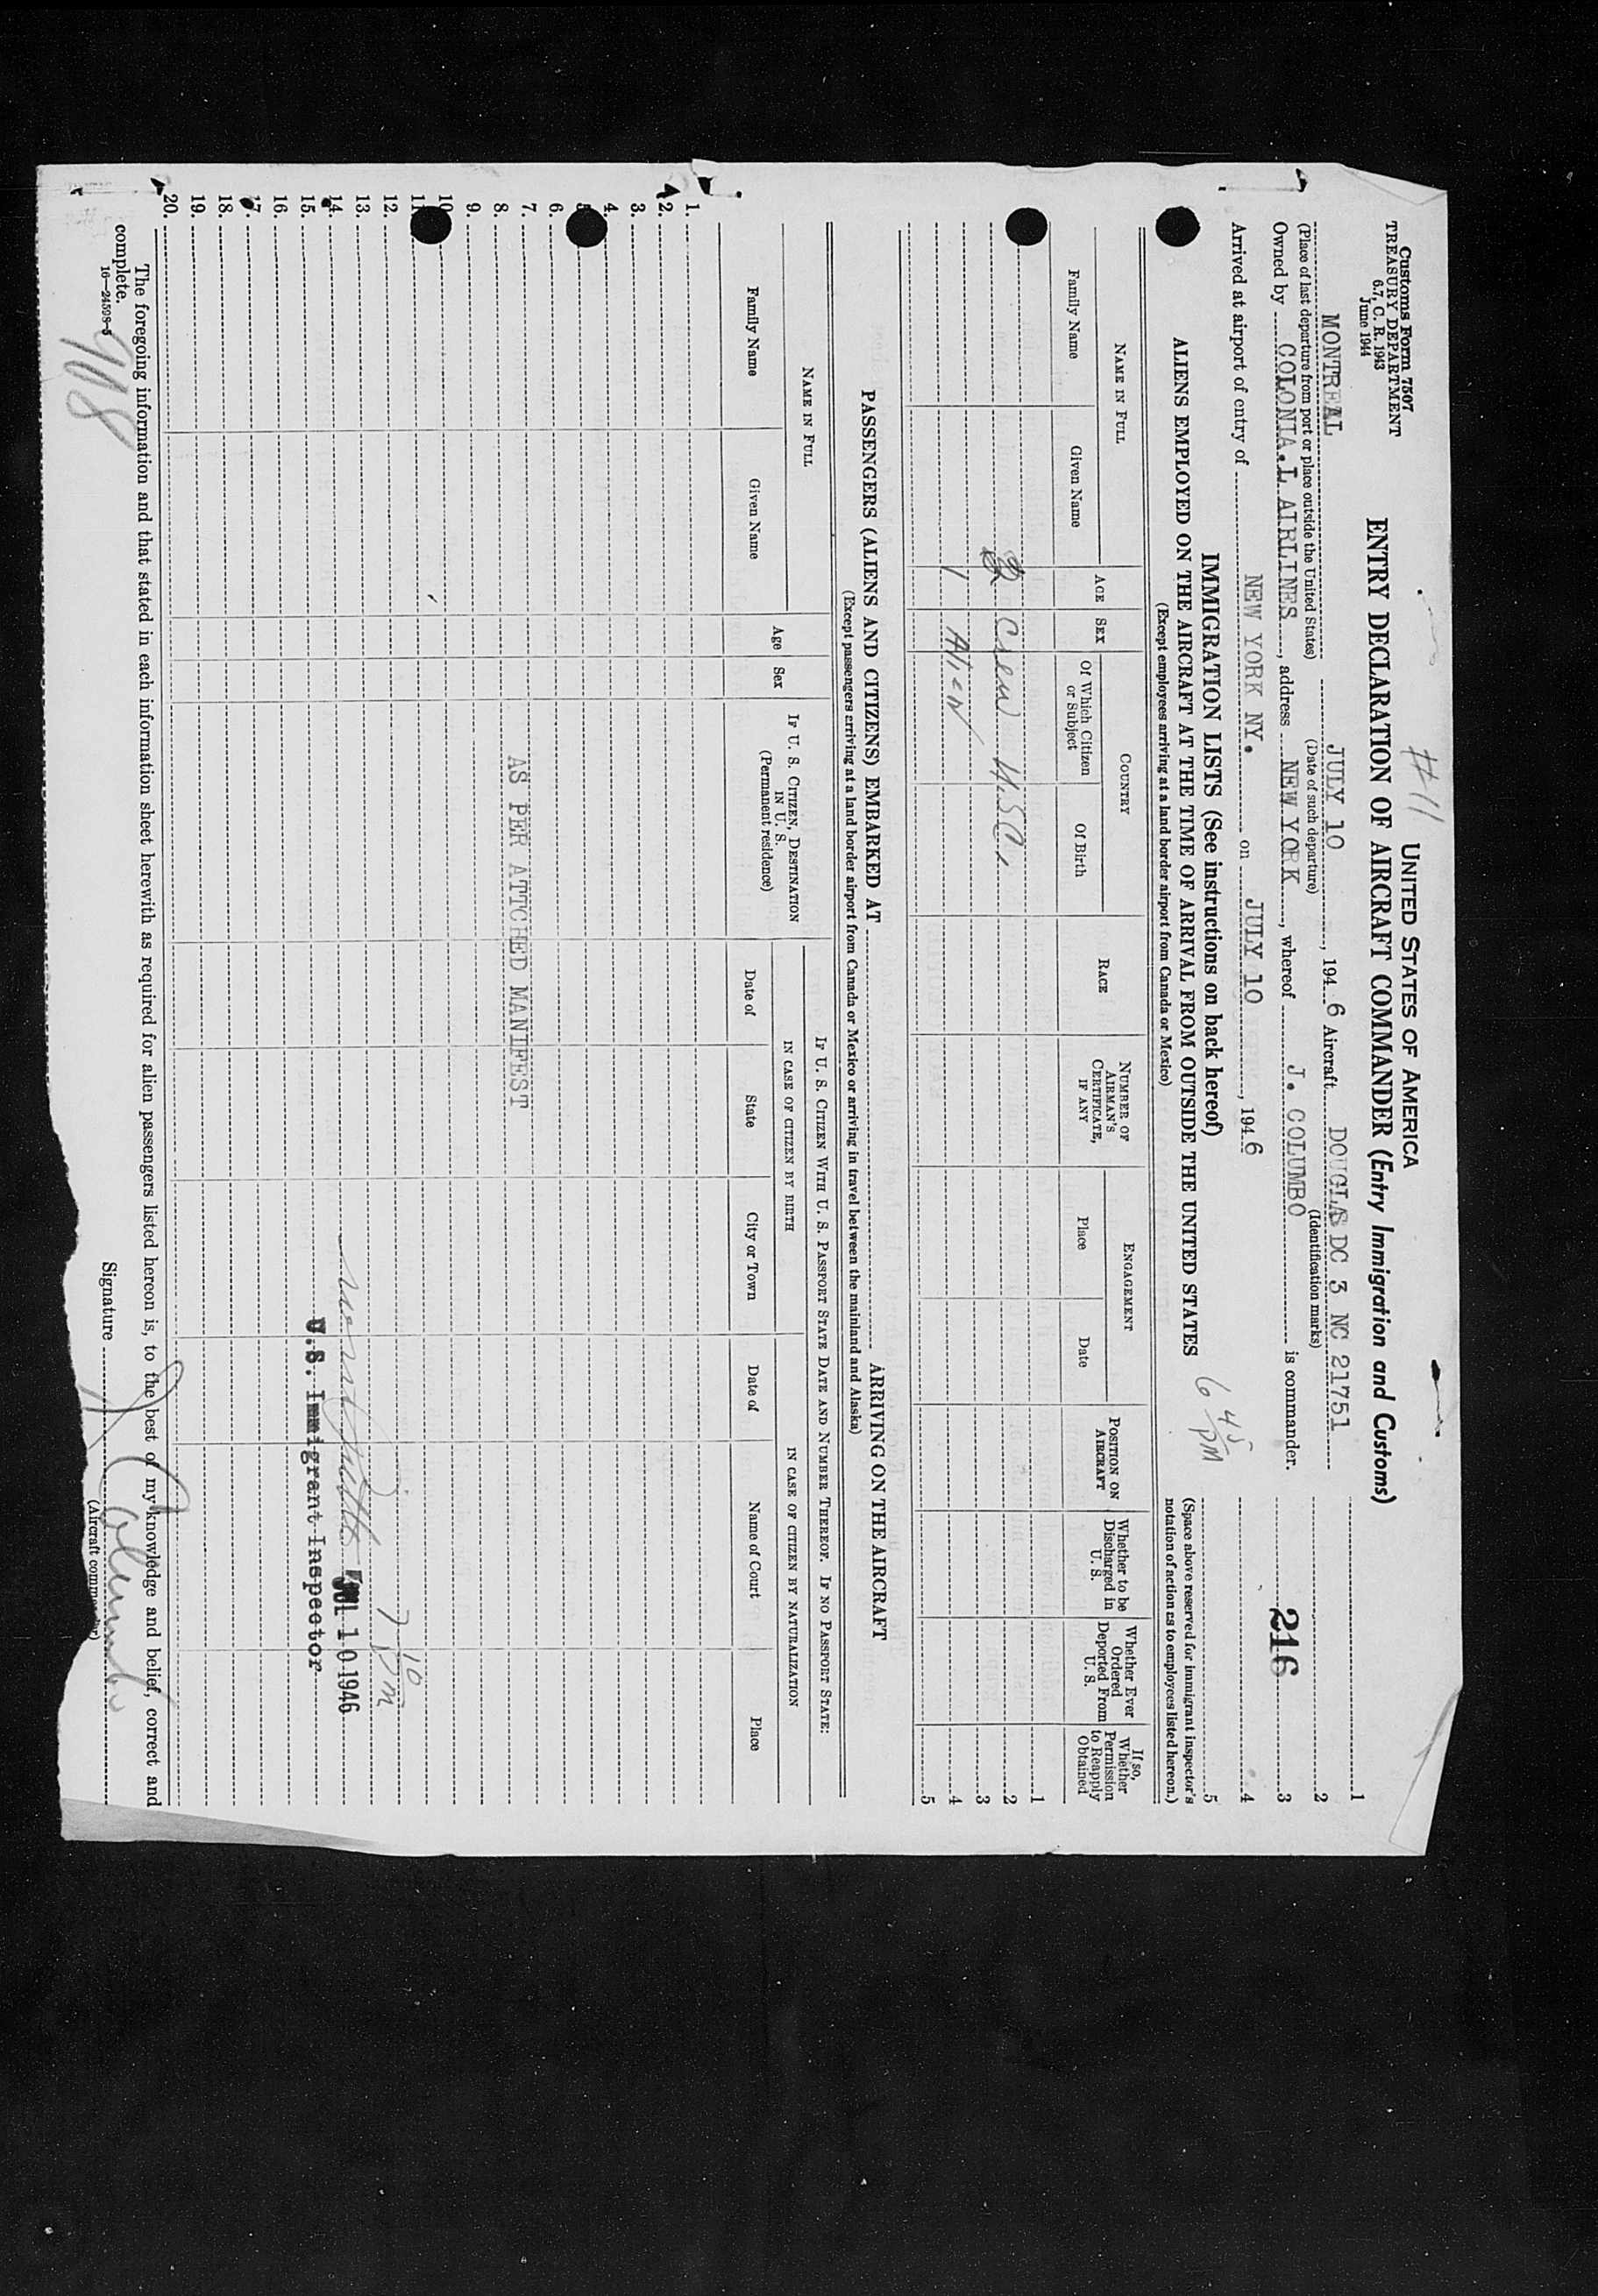 #11
Customs Form 7507
TREASURY DEPARTMENT
6.7, C. R. 1943
June 1944
UNITED STATES OF AMERICA
ENTRY DECLARATION OF AIRCRAFT COMMANDER (Entry Immigration and Customs)
MONTREAL JULY 10, 1946 Aircraft DOUGLAS DC 3 NC 21751
(Place of last departure from port or place outside the United States) (Date of such departure) (Identification marks)
Owned by COLONIA.L AIRLINES, address NEW YORK, whereof J. COLUMBO is commander.
Arrived at airport of entry of NEW YORK NY. on JULY 10, 1946
1
2
216 3
4
5
(Space above reserved for immigrant inspector's notation of action as to employees listed hereon.)
6 45 PM
IMMIGRATION LISTS (See instructions on back hereof)
ALIENS EMPLOYED ON THE AIRCRAFT AT THE TIME OF ARRIVAL FROM OUTSIDE THE UNITED STATES
(Except employees arriving at a land border airport from Canada or Mexico)
NAME IN FULL
Family Name
Given Name
AGE
SEX
COUNTRY
Of Which Citizen or Subject
Of Birth
RACE
NUMBER OF AIRMAN'S CERTIFICATE, IF ANY
ENGAGEMENT
Place
Date
POSITION ON AIRCRAFT
Whether to be Discharged in U. S.
Whether Ever Ordered Deported From U. S.
If so, Whether Permission to Reapply Obtained
1
2
Crew U.S.C.
3
1 Alien
4
5
PASSENGERS (ALIENS AND CITIZENS) EMBARKED AT ARRIVING ON THE AIRCRAFT
(Except passengers arriving at a land border airport from Canada or Mexico or arriving in travel between the mainland and Alaska)
NAME IN FULL
Family Name
Given Name
Age
Sex
IF U. S. CITIZEN, DESTINATION IN U. S.
(Permanent residence)
IF U. S. CITIZEN WITH U. S. PASSPORT STATE DATE AND NUMBER THEREOF. IF NO PASSPORT STATE:
IN CASE OF CITIZEN BY BIRTH
Date of
State
City or Town
IN CASE OF CITIZEN BY NATURALIZATION
Date of
Name of Court
Place
1.
2.
3.
4.
5
6.
7. AS PER ATTCHED MANIFEST
8.
9.
10
11
12. 7 10 PM
13.
14. JUL 10 1946
15. U.S. Immigrant Inspector
16.
17.
18.
19.
20.
The foregoing information and that stated in each information sheet herewith as required for alien passengers listed hereon is, to the best of my knowledge and belief, correct and
complete.
16—24598-5
Signature J Columbo
(Aircraft commander)